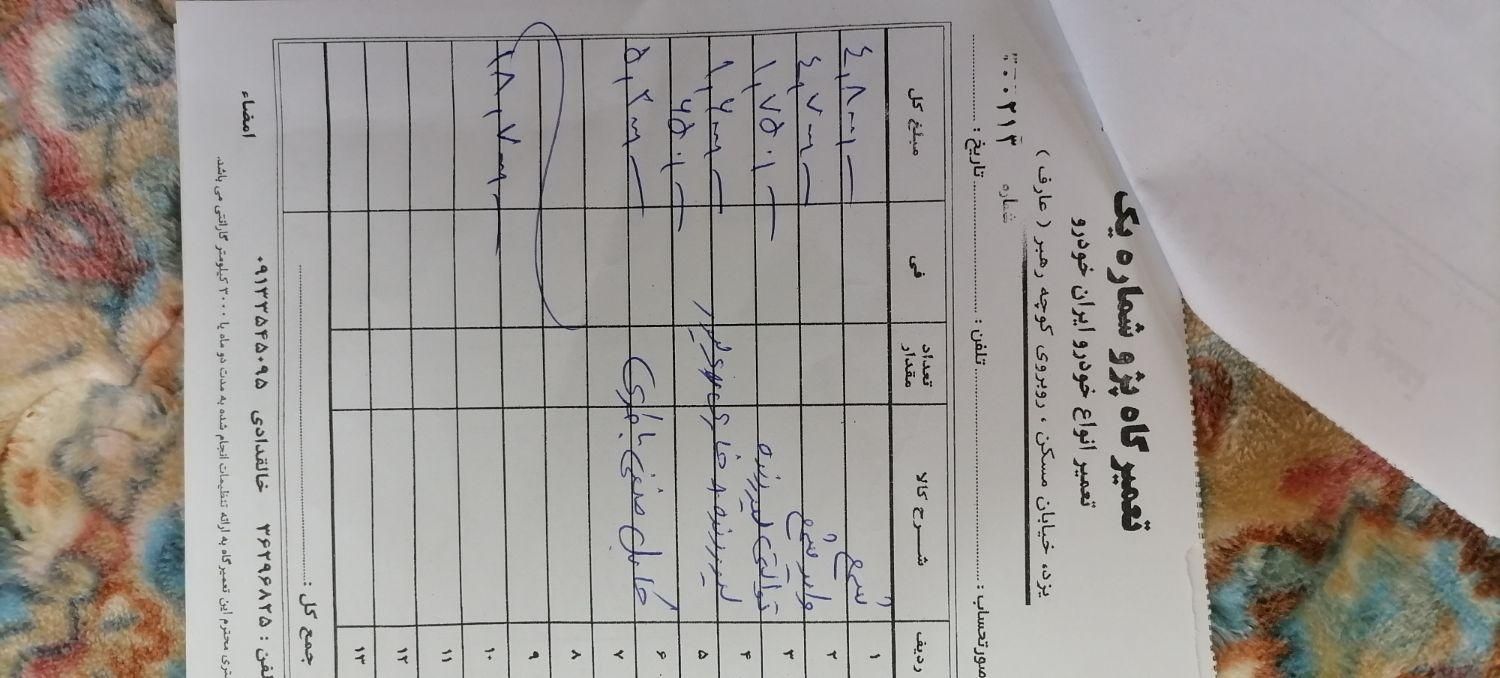 تعمیرگاه پژو شماره یک
تعمیر انواع خودرو ایران خودرو
یزد، خیابان مسکن ، روبروی کوچه رهبر ( عارف )
شماره ۰۰۰۲۱۳
صورتحساب : تلفن : تاریخ :
ردیف شرح کالا تعداد مقدار فی مبلغ کل
۱ شمع ٤,٨۰۰,۰۰۰
۲ وایر شمع ٤,۷۰۰,۰۰۰
۳ ۱,۷۵۰,۰۰۰
۴ ۱,۷۰۰,۰۰۰
۵ ,۶۵۰,۰۰۰
۶ کابل منفی باطری ۵,۲۰۰,۰۰۰
۷
۸
۹
۱۰ ۱۸,۷۰۰,۰۰۰
۱۱
۱۲
۱۳
جمع کل :
لفن : ۳۶۲۹۶۸۲۵ خالقدادی ۰۹۱۳۳۵۴۵۰۹۵ امضاء
تری محترم این تعمیرگاه به ارائه تنظیمات انجام شده به مدت دو ماه یا ۳۰۰۰ کیلومتر گارانتی می باشد.